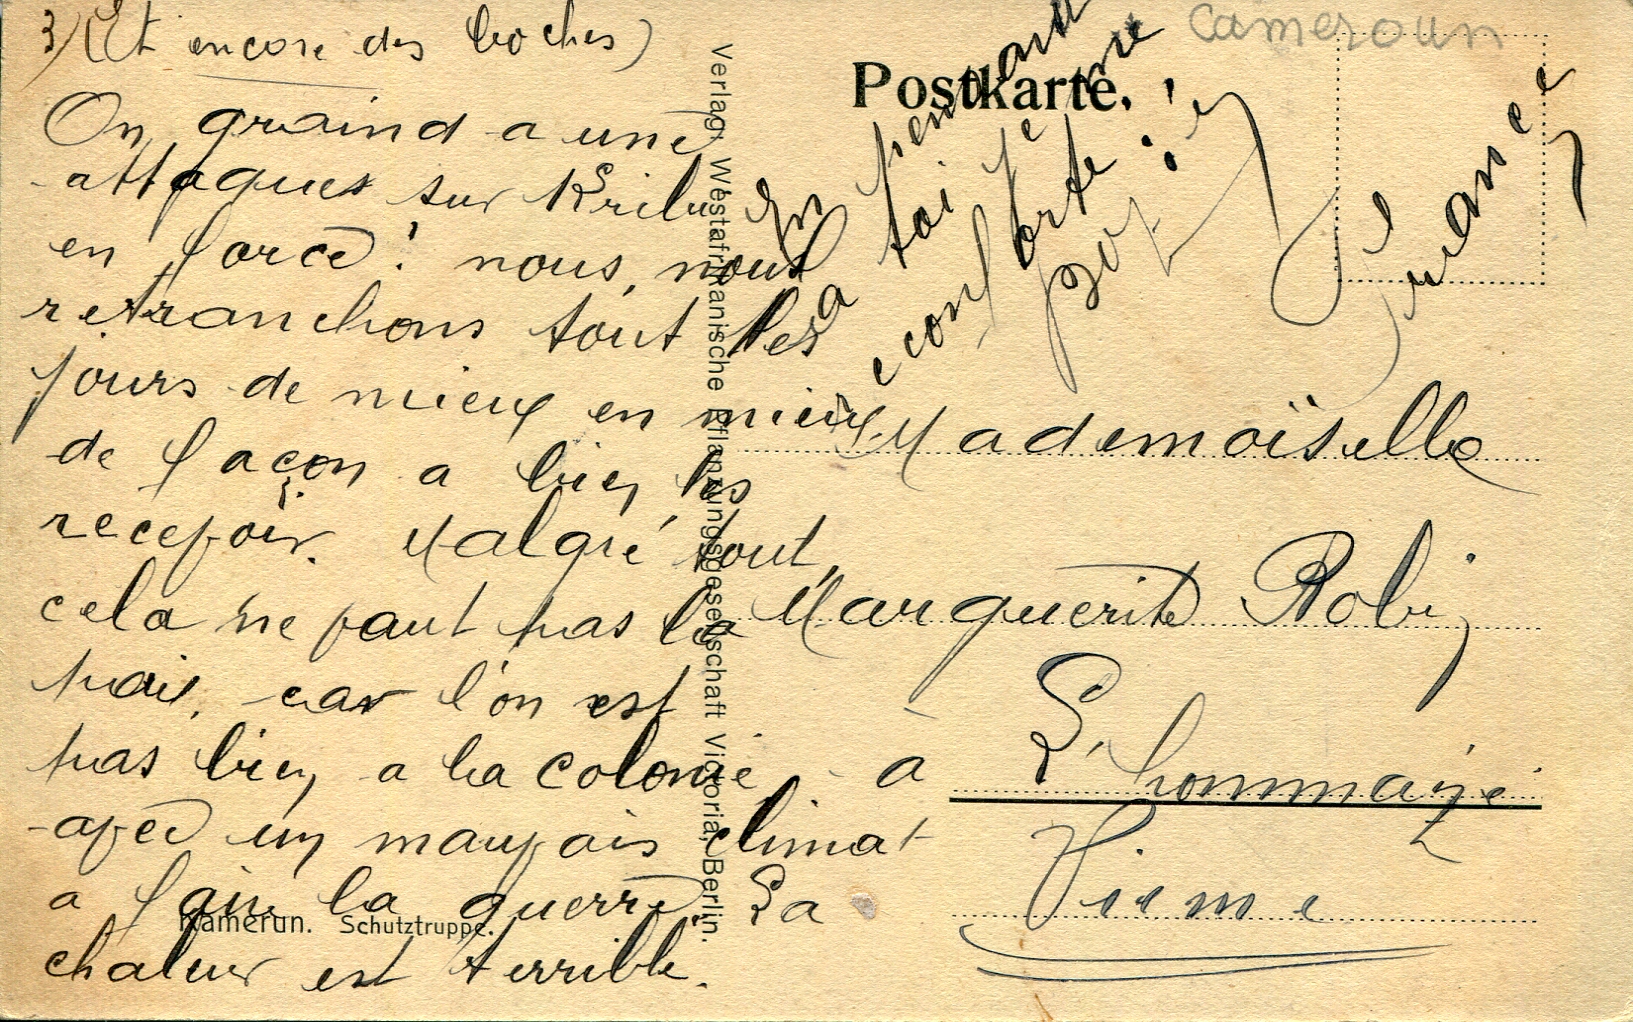 3) (Et encore des boches)
On craind a une
attaques sur Kribi
en force! nous, nous
retranchons tout les
jours de mieux en mieux
de façon a bien les
recevoir. Malgré tout,
cela ne vaut pas la
paix, car l'on est
pas bien a la colonie,
avec un mauvais climat
a faire la guerre La
chaleur est terrible.
Kamerun. Schutztruppe.
Verlag: Westafrikanische Pflanzungsgesellschaft Victoria, Berlin.
Cameroun
Postkarte.
En pensant
a toi je me
reconforte
Mademoiselle
Marguerite Robin
à Lhommaizé
Vienne